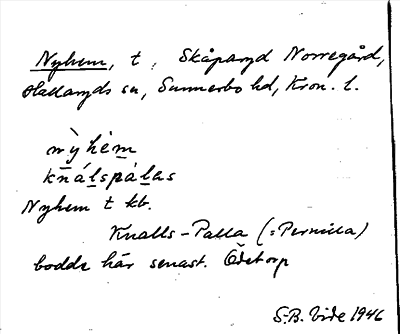 Nyhem, t, Skåparyd Norregård,
Hallaryds sn, Sunnerbo hd, Kron. l.
nỳhèm
knálspálas
Nyhem t kb.
Knalls-Palla (= Pernilla)
bodde här senast. Ödetorp
S-B. Vide 1946